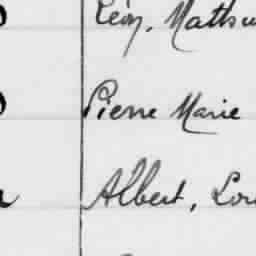 Léon, Mathu
Pierre Marie
Albert, Lou